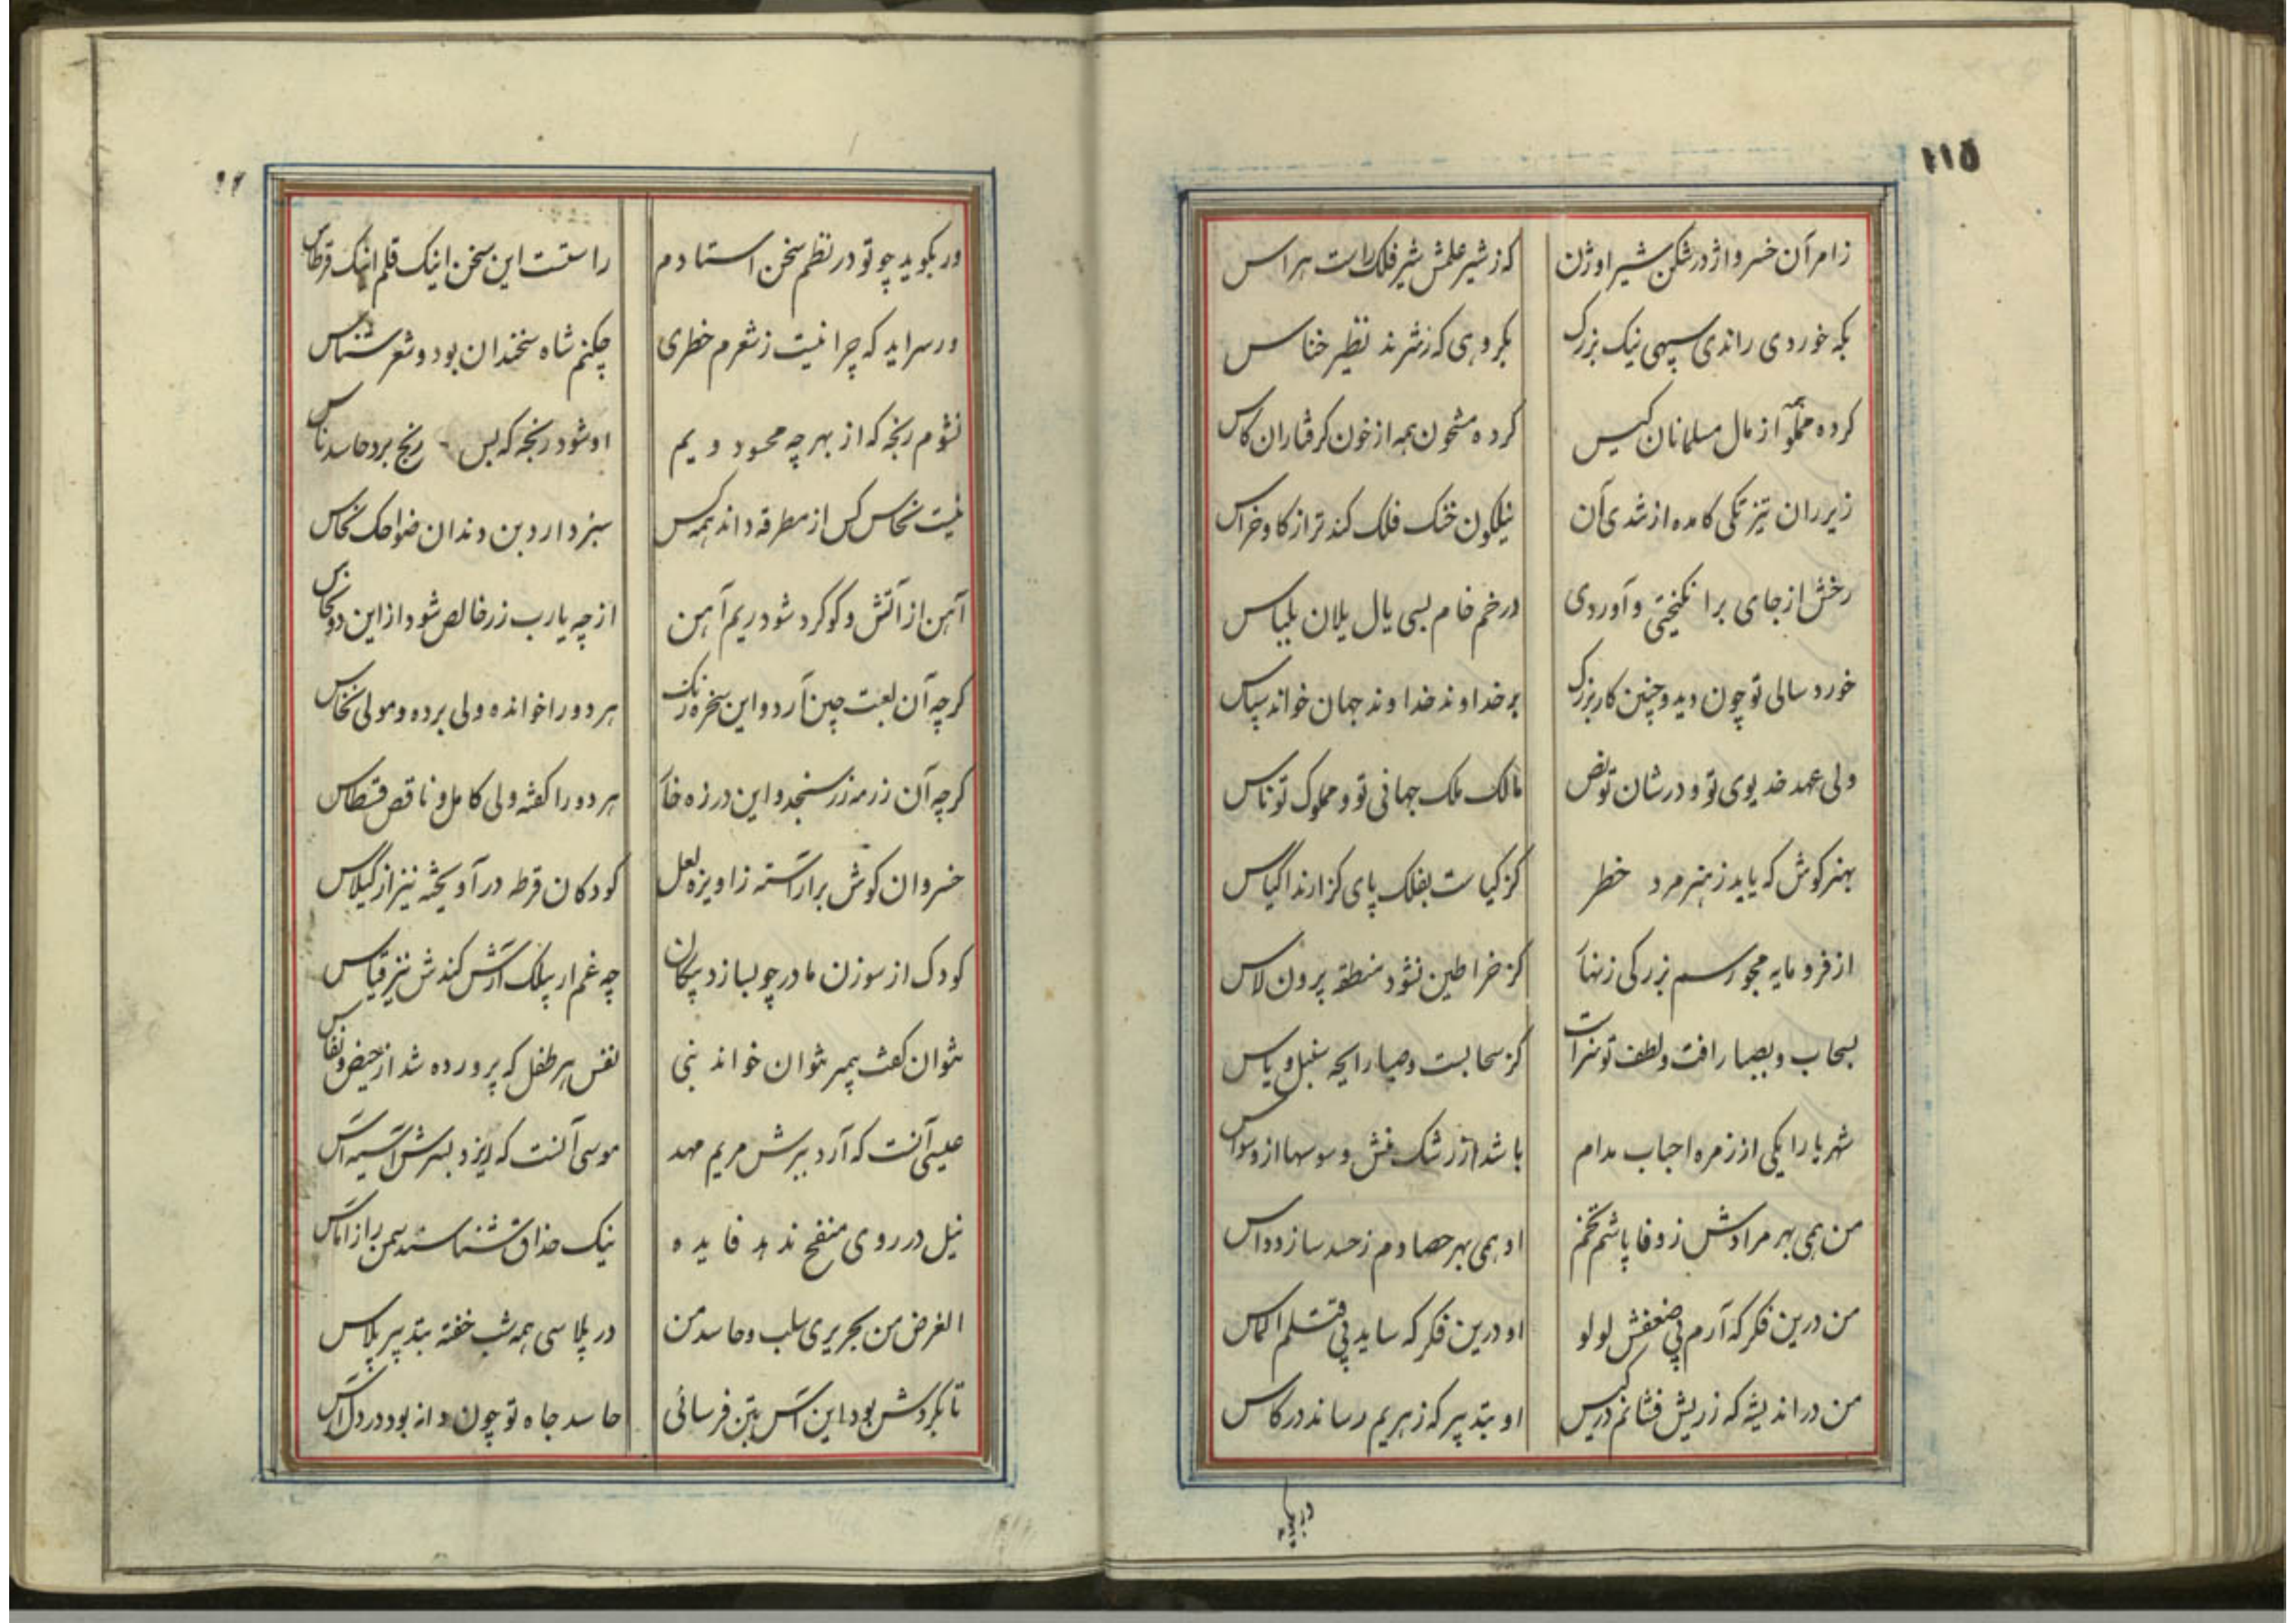 ۱۱۵
زامر آن خسرو اژدرشکن شیر اوژن
که ز شیر علمش شیر فلک راست هراس
بکه خوردی راندی سپهی نیک بزرک
بکروهی که ز شرند نظیر خناس
کرده مملو آز مال مسلمانان کیس
کرده مشحون همه از خون کرفتاران کاس
زیر ران تیز تکی کامده از شدی آن
نیلکون خنک فلک کندتر از کاو خراس
رخش از جای برانکیختی و آوردی
در خم خام بسی یال یلان بلباس
خورد سالی تو چون دید و چنین کار بزرک
بر خداوند خداوند جهان خواند سپاس
ولی عهد خدیوی تو و در شان تو نص
مالک ملک جهانی تو و مملوک تو ناس
بهنر کوش که یابد ز هنر مرد خطر
کز کیاست بفلک پای کزارند اکیاس
از فرومایه مجو رسم بزرکی زنهار
کز خراطین نشود منطقه پرون لاس
بسحاب و بصبا رافت و لطف تو سزاست
کز سحابست و صبا رایحه سنبل و یاس
شهریارا یکی از زمره احباب مدام
باشد از رشک منش وسوسها از وسواس
من همی بهر مرادش ز وفا پاشم تخم
او همی بهر حصادم ز حسد سازد داس
من درین فکر که آرم پی ضعفش لولو
او درین فکر که ساید پی قتلم الماس
من در اندیشه که زر پیش فشانم در کیس
او بتدبیر که زهریم رساند در کاس
ور بکوید
ور بکوید چو تو در نظم سخن استادم
راستست این سخن اینک قلم اینک قرطاس
ور سراید که چرا نیست ز شعرم خطری
چکنم شاه سخندان بود و شعر شناس
نشوم رنجه که از بهر چه محسود ویم
او شود رنجه که بس رنج برد حاسد ناس
نیست نحاس کس از مطرقه داند همه کس
سبز دارد بن دندان ضواحک نحاس
آهن از آتش و کوکرد شود ریم آهن
از چه یارب زر خالص شود از این دو نحاس
کرچه آن لعبت چین آرد و این سخره زنک
هر دو را خوانده ولی برده و مولی نخاس
کرچه آن زر مه زر سنجد و این درزه خار
هر دو را کفته ولی کامل و ناقص قسطاس
خسروان کوش برآراسته ز اویزه لعل
کودکان قرطه درآویخته نیز از کیلاس
کودک از سوزن مادر چو بسازد پیکان
چه غم ار پیلک آرش کندش نیز قیاس
نتوان کفت پیمبر نتوان خواند نبی
نفس هر طفل که پرورده شد از حیض و نفاس
عیسی آنست که آرد ببرش مریم مهد
موسی آنست که ایزد بسرش آسیه آس
نیل در روی منفخ ندهد فایده
نیک حذاق شناسند سمن را ز آماس
الغرض من بحریری سلب و حاسد من
در پلاسی همه شب خفته بتدبیر پلاس
تا بکردش بود این آس بتن فرسائی
حاسد جاه تو چون دانه بود در دل آس